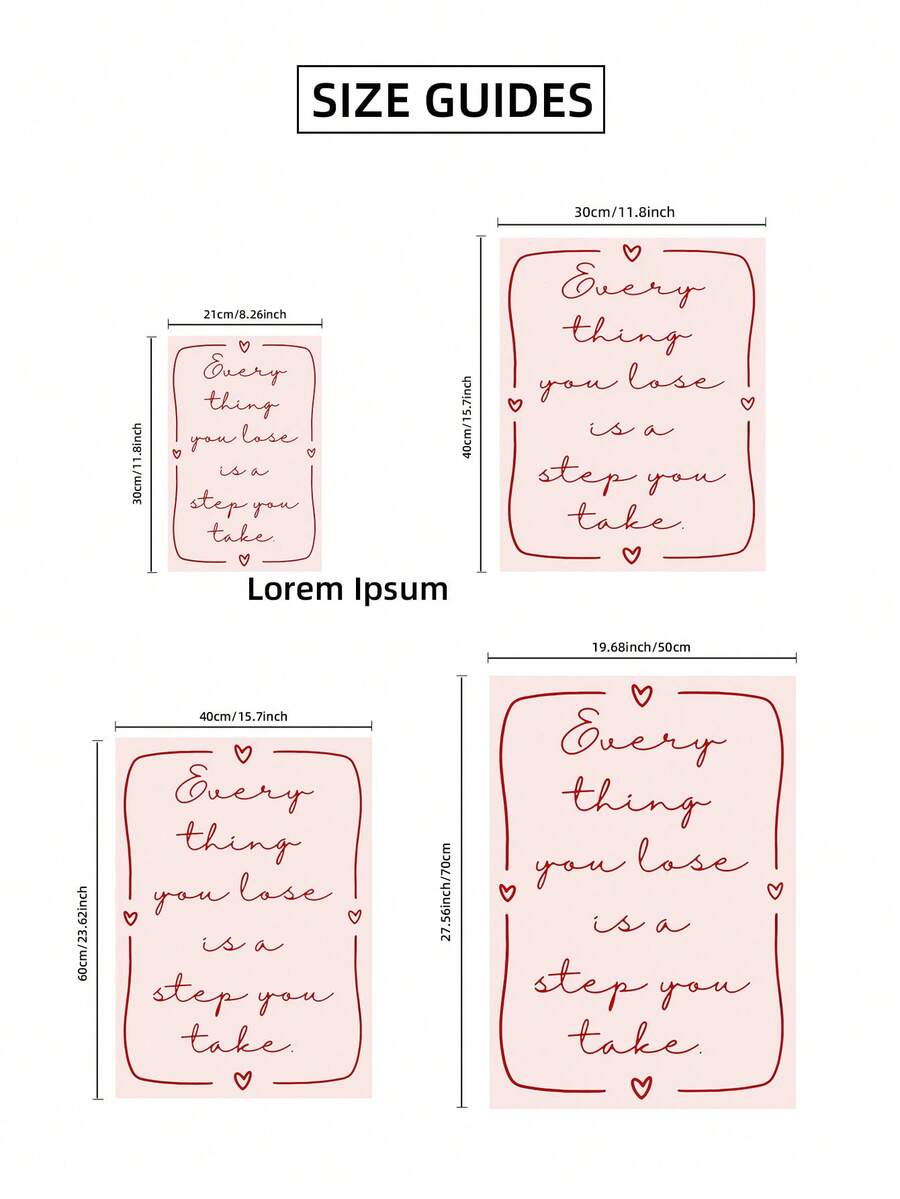 SIZE GUIDES
21cm/8.26inch
30cm/11.8inch
Every
thing
you lose
is a
step you
take.
30cm/11.8inch
40cm/15.7inch
Every
thing
you lose
is a
step you
take.
Lorem Ipsum
40cm/15.7inch
60cm/23.62inch
Every
thing
you lose
is a
step you
take.
19.68inch/50cm
27.56inch/70cm
Every
thing
you lose
is a
step you
take.